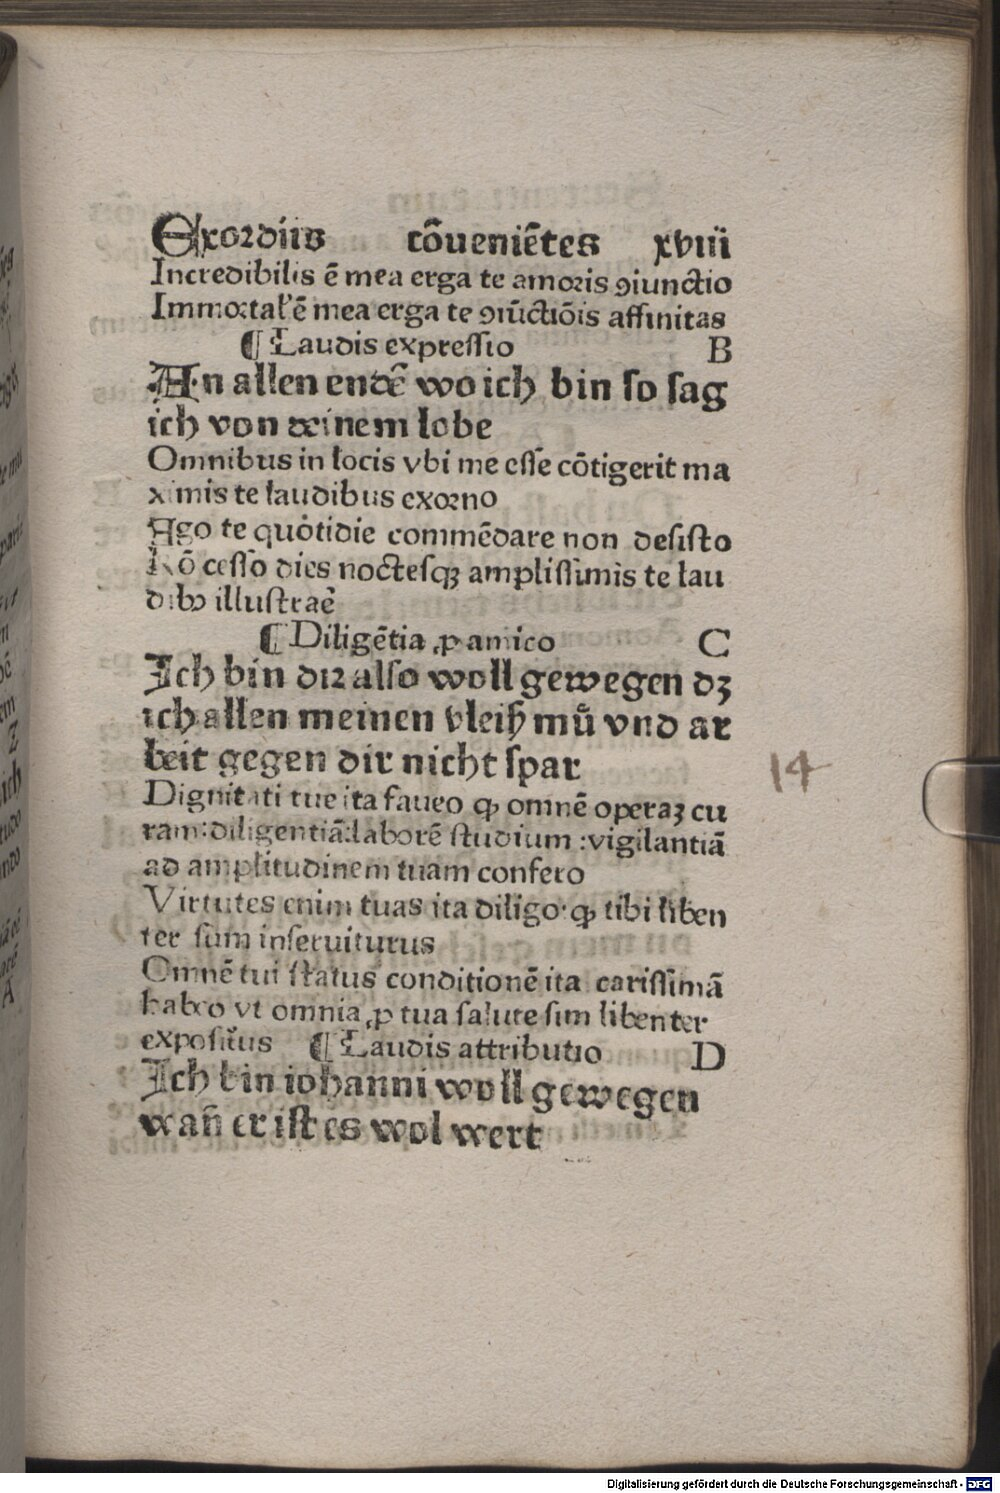 Exordiis cōueniētes xviii
Incredibilis ē mea erga te amoris ꝯiunctio
Immortal' ē mea erga te ꝯiūctiōis affinitas
¶ Laudis expressio B
An allen endē wo ich bin so sag
ich von deinem lobe
Omnibus in locis vbi me esse cōtigerit ma
ximis te laudibus exorno
Ago te quotidie commēdare non desisto
Nō cesso dies noctesqꝫ amplissimis te lau
dibꝰ illustrare
¶ Diligētia ꝓ amico C
Ich bin dir also woll gewegen dz
ich allen meinen vleiß mů vnd ar
beit gegen dir nicht spar
Dignitati tue ita faueo ꝙ omnē operaꝫ cu
ram: diligentiā: laborē studium: vigilantiā
ad amplitudinem tuam confero
Virtutes enim tuas ita diligo· ꝙ tibi liben
ter sum inseruiturus
Omnē tui status conditionē ita carissimā
habeo vt omnia ꝓ tua salute sim libenter
expositurus ¶ Laudis attributio D
Ich bin iohanni woll gewegen
wañ er ist es wol wert
14
Digitalisierung gefördert durch die Deutsche Forschungsgemeinschaft - DFG